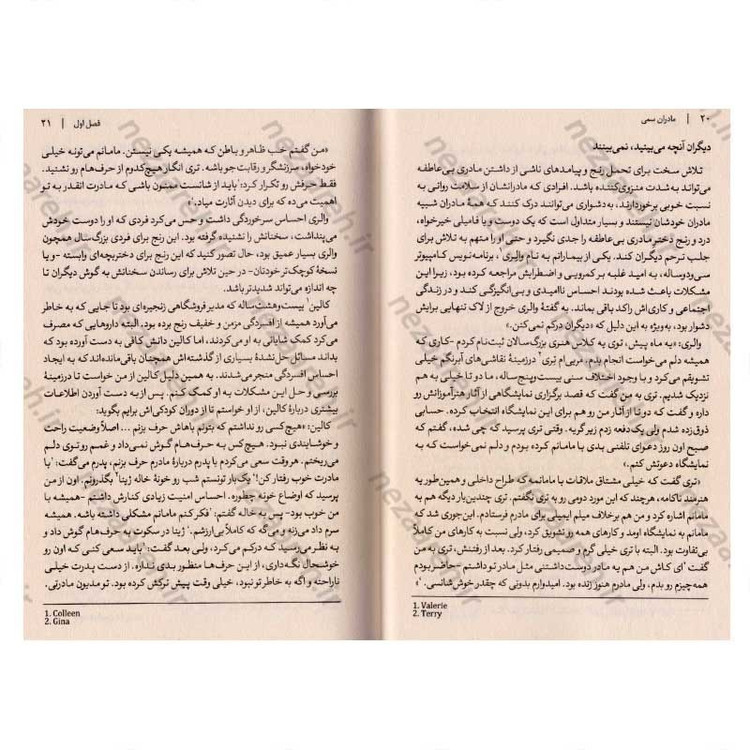 ۲۰ | مادران سمی
دیگران آنچه می‌بینید، نمی‌بینند
تلاش سخت برای تحمل رنج و پیامدهای ناشی از داشتن مادری بی‌عاطفه
می‌تواند به شدت منزوی‌کننده باشد. افرادی که مادرانشان از سلامت روانی به
نسبت خوبی برخوردارند، به‌دشواری می‌توانند درک کنند که همهٔ مادران شبیه
مادران خودشان نیستند و بسیار متداول است که یک دوست و یا فامیلی خیرخواه،
درد و رنج دختر مادری بی‌عاطفه را جدی نگیرد و حتی او را متهم به تلاش برای
جلب ترحم دیگران کند. یکی از بیمارانم به نام والری۱، برنامه‌نویس کامپیوتر
سی‌ودوساله، به امید غلبه بر کم‌رویی و اضطرابش مراجعه کرده بود، زیرا این
مشکلات باعث شده بودند احساس ناامیدی و بی‌انگیزگی کند و در زندگی
اجتماعی و کاری‌اش راکد باقی بماند. به گفتهٔ والری خروج از لاک تنهایی برایش
دشوار بود، به‌ویژه به این دلیل که «دیگران درکم نمی‌کنن.»
والری: «یه ماه پیش، توی یه کلاس هنری بزرگ‌سالان ثبت‌نام کردم -کاری که
همیشه دلم می‌خواست انجام بدم. مربی‌ام تری۲ درزمینهٔ نقاشی‌های آبرنگم خیلی
تشویقم می‌کرد و با وجود اختلاف سنی بیست‌وپنج‌ساله، ما دو تا خیلی به هم
نزدیک شدیم. تری به من گفت که قصد برگزاری نمایشگاهی از آثار هنرآموزانش رو
داره و گفت که دوتا از آثار من رو هم برای این نمایشگاه انتخاب کرده. حسابی
ذوق‌زده شدم ولی یک دفعه زدم زیر گریه. وقتی تری پرسید که چی شده، گفتم که
صبح اون روز دعوای تلفنی بدی با مامانم کرده بودم و دلم نمی‌خواست که به
نمایشگاه دعوتش کنم.»
«تری گفت که خیلی مشتاق ملاقات با مامانمه که طراح داخلی و همین‌طور یه
هنرمند ناکامه، هرچند که این مورد دومی رو به تری نگفتم. تری چندین‌بار دیگه هم به
مامانم اشاره کرد و من هم برخلاف میلم ایمیلی برای مادرم فرستادم. این‌جوری شد که
مامانم به نمایشگاه اومد و کارهای همه رو تشویق کرد، ولی نسبت به کارهای من کاملاً
بی‌تفاوت بود. البته با تری خیلی گرم و صمیمی رفتار کرد. بعد از رفتنش، تری به من
گفت 'ای کاش من هم یه مادر دوست‌داشتنی مثل مادر تو داشتم -حاضر بودم
همه‌چیزم رو بدم، ولی مادرم هنوز زنده بود. امیدوارم بدونی که چقدر خوش‌شانسی.'»
1. Valerie
2. Terry
فصل اول | ۲۱
«من گفتم خب ظاهر و باطن که همیشه یکی نیستن. مامانم می‌تونه خیلی
خودخواه، سرزنشگر و رقابت‌جو باشه. تری انگار هیچ‌کدوم از حرف‌هام رو نشنید.
فقط حرفش رو تکرار کرد: 'باید از شانست ممنون باشی که مادرت انقدر به تو
اهمیت می‌ده که برای دیدن آثارت میاد.'»
والری احساس سرخوردگی داشت و حس می‌کرد فردی که او را دوست خودش
می‌پنداشت، سخنانش را نشنیده گرفته بود. این رنج برای فردی بزرگ‌سال همچون
والری بسیار عمیق بود، حال تصور کنید که این رنج برای دختربچه‌ای وابسته -و یا
نسخهٔ کوچک‌تر خودتان- در حین تلاش برای رساندن سخنانش به گوش دیگران تا
چه اندازه می‌تواند شدیدتر باشد.
کالین۱ بیست‌وهشت‌ساله که مدیر فروشگاهی زنجیره‌ای بود تا جایی که به خاطر
می‌آورد همیشه از افسردگی مزمن و خفیف رنج برده بود. البته داروهایی که مصرف
می‌کرد کمک شایانی به او می‌کردند، اما کالین دانش کافی به دست آورده بود که
بداند مسائل حل‌نشدهٔ بسیاری از گذشته‌اش همچنان باقی مانده‌اند که به ایجاد
احساس افسردگی منجر می‌شدند. به همین دلیل کالین از من خواست تا درزمینهٔ
بررسی و حل این مشکلات به او کمک کنم. پس از به دست آوردن اطلاعات
بیشتری دربارهٔ کالین، از او خواستم تا از دوران کودکی‌اش برایم بگوید:
کالین: «هیچ‌کسی رو نداشتم که بتونم باهاش حرف بزنم ... اصلاً وضعیت راحت
و خوشایندی نبود. هیچ‌کس به حرف‌هام گوش نمی‌داد و غمم رو توی دلم
می‌ریختم. هر وقت سعی می‌کردم با پدرم دربارهٔ مادرم حرف بزنم، پدرم می‌گفت: 'با
مادرت خوب رفتار کن!' یک‌بار تونستم شب رو خونهٔ خاله ژینا۲ بگذرونم. اون از من
پرسید که اوضاع خونه چطوره. احساس امنیت زیادی کنارش داشتم -همیشه با
من خوب بود- پس به خاله گفتم: 'فکر کنم مامانم مشکلی داشته باشه. همیشه
سرم داد می‌زنه و می‌گه که کاملاً بی‌ارزشم.' ژینا در سکوت به حرف‌هام گوش داد و
به نظر می‌رسید که درکم می‌کرد، ولی بعد گفت: 'باید سعی کنی که اون رو
خوشحال نگه‌داری، از این حرف‌ها منظور بدی نداره. از دست پدرت خیلی
ناراحته و اگه به خاطر تو نبود، خیلی وقت پیش ترکش کرده بود. تو مدیون مادرتی.
1. Colleen
2. Gina